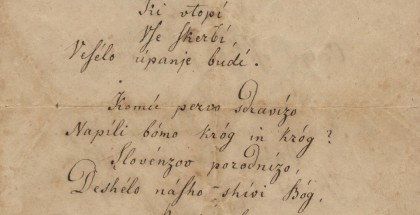 Ki vtopí
Vse skerbí,
Vesélo úpanje budí.
Komú pervo sdravízo
Napíli bómo króg in króg?
Slovénzov porodnízo,
Deshélo násho shívi Bóg,